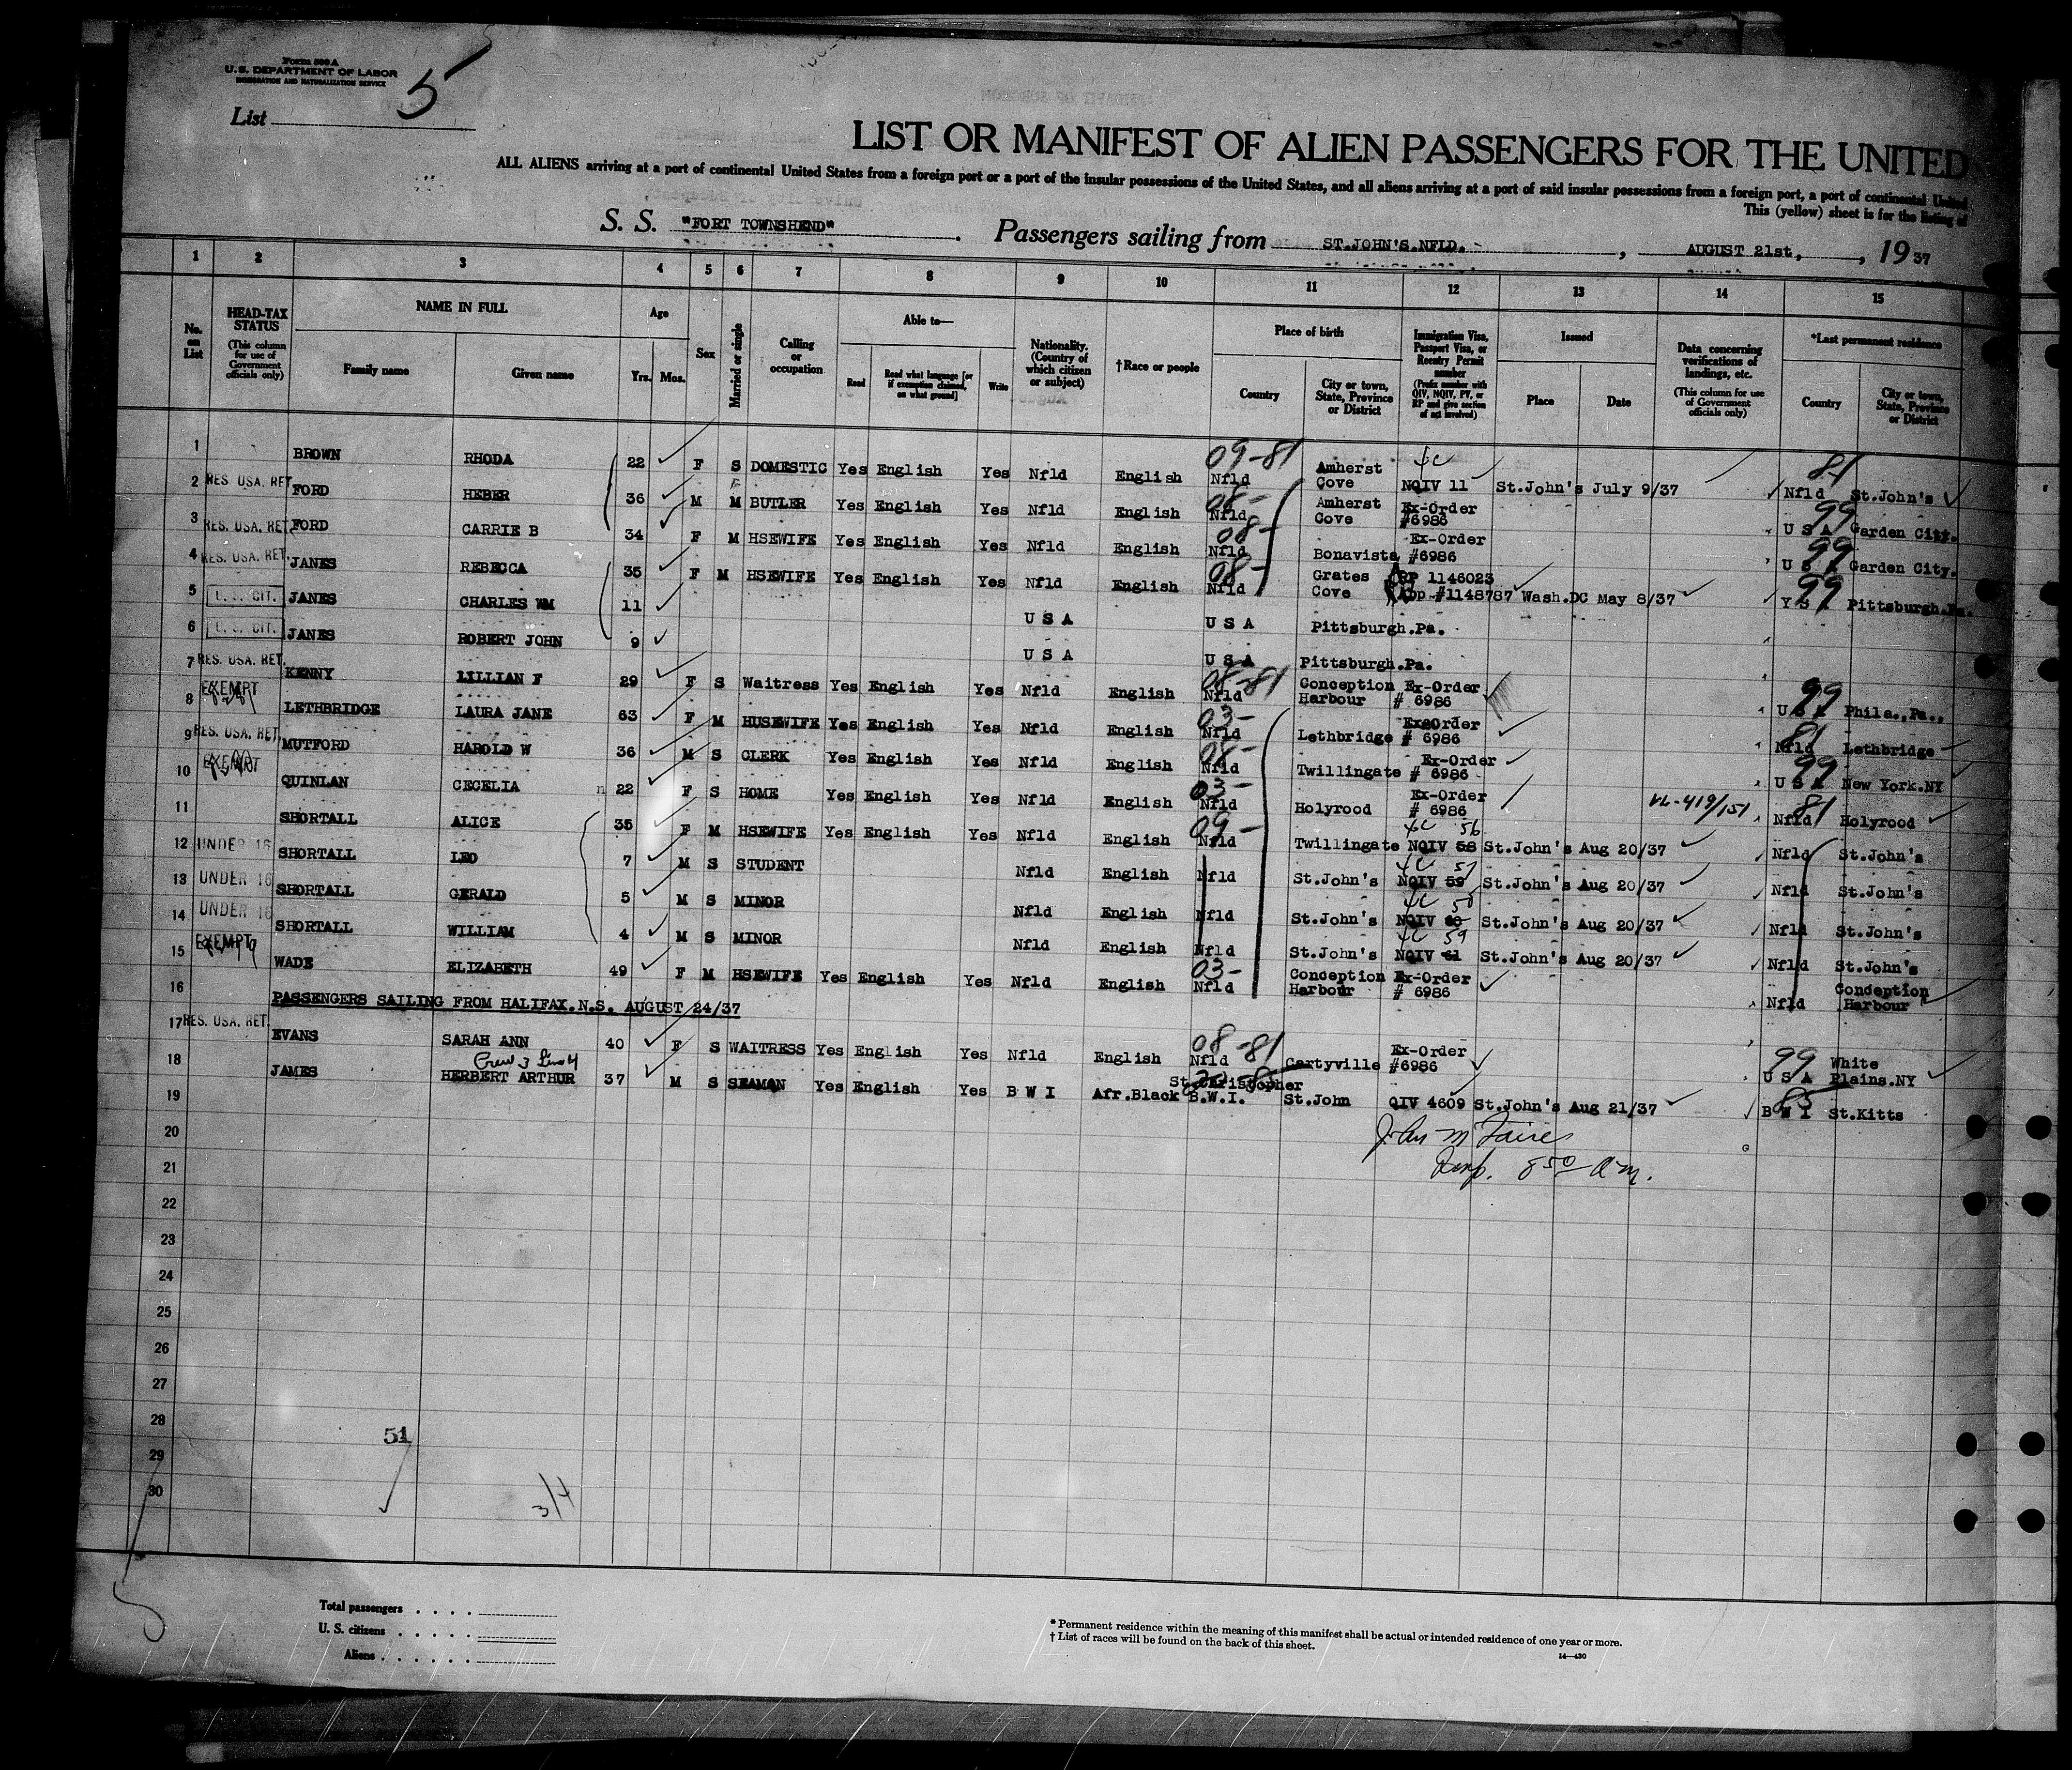 Form 500 A
U. S. DEPARTMENT OF LABOR
IMMIGRATION AND NATURALIZATION SERVICE
List 5
LIST OR MANIFEST OF ALIEN PASSENGERS FOR THE UNITED
ALL ALIENS arriving at a port of continental United States from a foreign port or a port of the insular possessions of the United States, and all aliens arriving at a port of said insular possessions from a foreign port, a port of continental United
This (yellow) sheet is for the listing of
S. S. "FORT TOWNSHEND" . Passengers sailing from ST.JOHN'S.NFLD. , AUGUST 21st, , 19 37
1 2 3 4 5 6 7 8 9 10 11 12 13 14 15
No. on List
HEAD-TAX STATUS (This column for use of Government officials only)
NAME IN FULL
Family name
Given name
Age
Yrs. Mos.
Sex
Married or single
Calling or occupation
Able to—
Read
Read what language [or if exemption claimed, on what ground]
Write
Nationality. (Country of which citizen or subject)
†Race or people
Place of birth
Country
City or town, State, Province or District
Immigration Visa, Passport Visa, or Reentry Permit number (Prefix number with QIV, NQIV, PV, or RP and give section of act involved)
Issued
Place
Date
Data concerning verifications of landings, etc. (This column for use of Government officials only)
*Last permanent residence
Country
City or town, State, Province or District
1 BROWN RHODA 22 F S DOMESTIC Yes English Yes Nfld English 09-81 Nfld Amherst Cove NQIV 11 St.John's July 9/37 81 Nfld St.John's
2 RES. USA. RET. FORD HEBER 36 M M BUTLER Yes English Yes Nfld English 08- Nfld Amherst Cove Ex-Order #6986 99 U S A Garden City.
3 RES. USA. RET. FORD CARRIE B 34 F M HSEWIFE Yes English Yes Nfld English 08- Nfld Bonavista Ex-Order #6986 99 U S A Garden City.
4 RES. USA. RET. JANES REBECCA 35 F M HSEWIFE Yes English Yes Nfld English 08- Nfld Grates Cove RP 1146023 App #1148787 Wash.DC May 8/37 99 Pittsburgh.Pa.
5 U. S. CIT. JANES CHARLES WM 11 U S A U S A Pittsburgh.Pa.
6 U. S. CIT. JANES ROBERT JOHN 9 U S A U S A Pittsburgh.Pa.
7 RES. USA. RET. KENNY LILLIAN F 29 F S Waitress Yes English Yes Nfld English 08-81 Nfld Conception Harbour Ex-Order # 6986 99 U S A Phila.,Pa.,
8 EXEMPT LETHBRIDGE LAURA JANE 63 F M HUSEWIFE Yes English Yes Nfld English 03- Nfld Lethbridge ExeOrder # 6986 81 Nfld Lethbridge
9 RES. USA. RET. MUTFORD HAROLD W 36 M S CLERK Yes English Yes Nfld English 08- Nfld Twillingate Ex-Order # 6986 99 U S A New York.NY
10 EXEMPT QUINLAN CECELIA 22 F S HOME Yes English Yes Nfld English 03- Nfld Holyrood Ex-Order # 6986 VL-419/151 81 Nfld Holyrood
11 SHORTALL ALICE 35 F M HSEWIFE Yes English Yes Nfld English 09- Nfld Twillingate NQIV 58 56 St.John's Aug 20/37 Nfld St.John's
12 UNDER 16 SHORTALL LEO 7 M S STUDENT Nfld English Nfld St.John's NQIV 59 57 St.John's Aug 20/37 Nfld St.John's
13 UNDER 16 SHORTALL GERALD 5 M S MINOR Nfld English Nfld St.John's NQIV 60 58 St.John's Aug 20/37 Nfld St.John's
14 UNDER 16 SHORTALL WILLIAM 4 M S MINOR Nfld English Nfld St.John's NQIV 61 59 St.John's Aug 20/37 Nfld St.John's
15 EXEMPT WADE ELIZABETH 49 F M HSEWIFE Yes English Yes Nfld English 03- Nfld Conception Harbour Ex-Order # 6986 Nfld Conception Harbour
16 PASSENGERS SAILING FROM HALIFAX.N.S. AUGUST 24/37
17 RES. USA. RET. EVANS SARAH ANN 40 F S WAITRESS Yes English Yes Nfld English 08-81 Nfld Cartyville Ex-Order #6986 99 U S A White Plains.NY
18 JAMES HERBERT ARTHUR 37 M S SEAMAN Yes English Yes B W I Afr.Black St.Christopher B.W.I. St.John QIV 4609 St.John's Aug 21/37 85 B W I St.Kitts
19
20
21
22
23
24
25
26
27
28
29
30
51
3/4
8 50 a m.
Total passengers
U. S. citizens
Aliens
* Permanent residence within the meaning of this manifest shall be actual or intended residence of one year or more.
† List of races will be found on the back of this sheet.
14—430